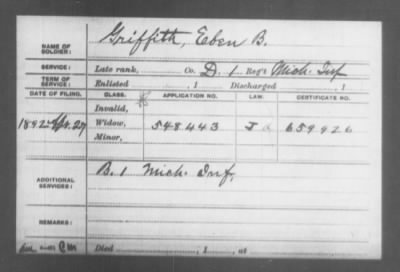 NAME OF SOLDIER: Griffith, Eben B.
SERVICE: Late rank, Co. D. 1 Reg't Mich. Inf
TERM OF SERVICE: Enlisted , 1 Discharged , 1
DATE OF FILING. CLASS. APPLICATION NO. LAW. CERTIFICATE NO.
Invalid,
1892 Widow, 548443 659926
Minor,
ADDITIONAL SERVICES: B. 1 Mich. Inf.
REMARKS:
Died , 1 , at